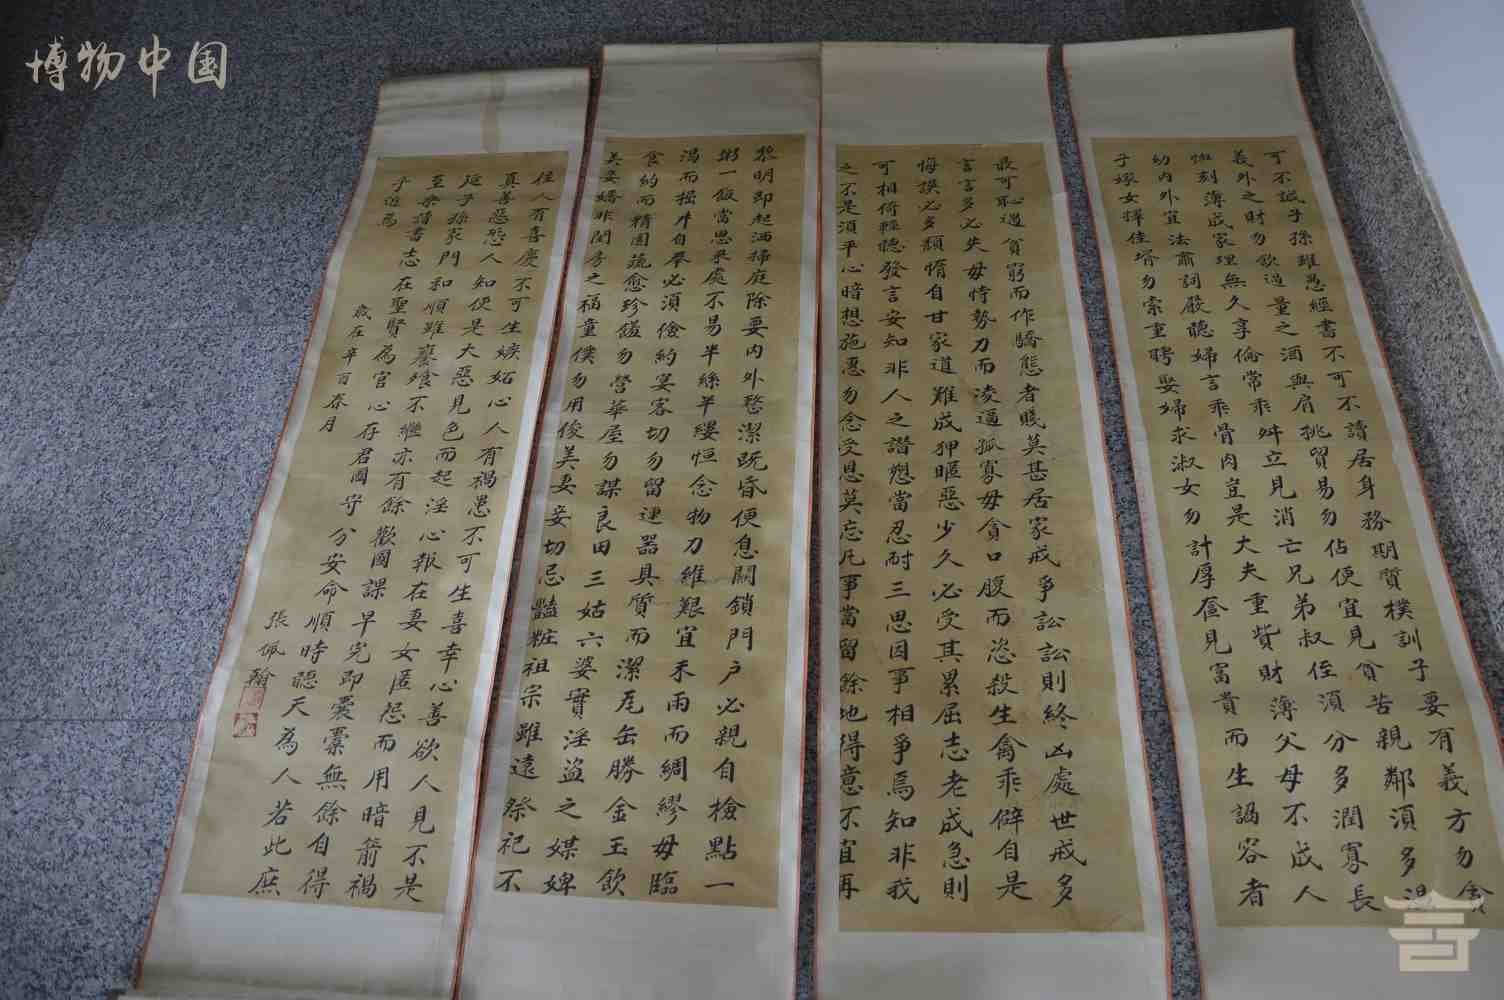 博物中国
可不誠子孫雖愚經書不可不讀居身務期質樸訓子要有義方勿貪
義外之財勿飲過量之酒與肩挑貿易勿佔便宜見貧苦親鄰須多溫
恤刻薄成家理無久享倫常乖舛立見消亡兄弟叔侄須分多潤寡長
幼內外宜法肅詞嚴聽婦言乖骨肉豈是大夫重貲財薄父母不成人
子嫁女擇佳壻勿索重聘娶婦求淑女勿計厚奩見富貴而生諂容者
最可恥遇貧窮而作驕態者賤莫甚居家戒爭訟訟則終凶處世戒多
言言多必失毋恃勢力而凌逼孤寡毋貪口腹而恣殺生禽乖僻自是
悔誤必多頹惰自甘家道難成狎暱惡少久必受其累屈志老成急則
可相倚輕聽發言安知非人之譖愬當忍耐三思因事相爭焉知非我
之不是須平心暗想施惠勿念受恩莫忘凡事當留餘地得意不宜再
黎明即起洒掃庭除要內外整潔既昏便息關鎖門戶必親自檢點一
粥一飯當思來處不易半絲半縷恒念物力維艱宜未雨而綢繆毋臨
渴而掘井自奉必須儉約宴客切勿留連器具質而潔瓦缶勝金玉飲
食約而精園蔬愈珍饈勿營華屋勿謀良田三姑六婆實淫盜之媒婢
美妾嬌非閨房之福童僕勿用俊美妻妾切忌豔粧祖宗雖遠祭祀不
往人有喜慶不可生嫉妬心人有禍患不可生喜幸心善欲人見不是
真善惡恐人知便是大惡見色而起淫心報在妻女匿怨而用暗箭禍
延子孫家門和順雖饔飧不繼亦有餘歡國課早完即囊橐無餘自得
至樂讀書志在聖賢為官心存君國守分安命順時聽天為人若此庶
乎近焉
歲在辛酉春月
張佩翰